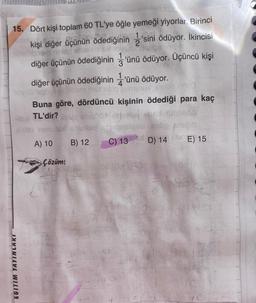 15. Dört kişi toplam 60 TL'ye öğle yemeği yiyorlar. Birinci
kişi diğer üçünün ödediğinin 1/2'sini ödüyor. İkincisi
diğer üçünün ödediğinin 1/3'ünü ödüyor. Üçüncü kişi
diğer üçünün ödediğinin 1/4'ünü ödüyor.
Buna göre, dördüncü kişinin ödediği para kaç
TL'dir?
A) 10 B) 12 C) 13 D) 14 E) 15
Çözüm:
EĞİTİM YAYINLARI